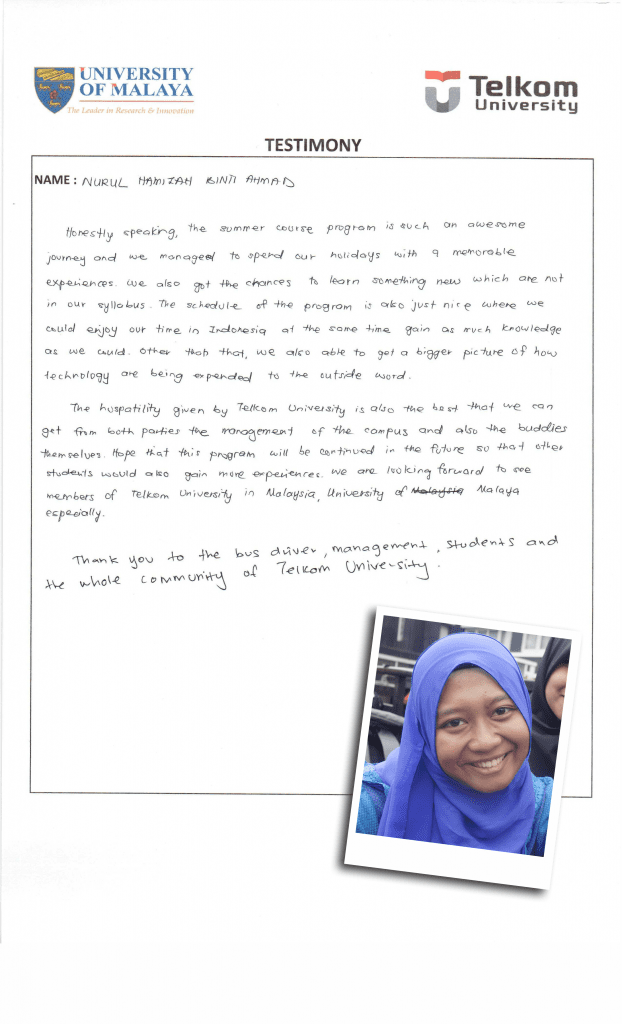 UNIVERSITY
OF MALAYA
The Leader in Research & Innovation
Telkom
University
TESTIMONY
NAME : NURUL HAMIZAH BINTI AHMAD
Honestly speaking, the summer course program is such an awesome
journey and we managed to spend our holidays with a memorable
experiences. We also got the chances to learn something new which are not
in our syllabus. The schedule of the program is also just nice where we
could enjoy our time in Indonesia at the same time gain as much knowledge
as we could. Other than that, we also able to get a bigger picture of how
technology are being expended to the outside word.
The huspatility given by Telkom University is also the best that we can
get from both parties the management of the campus and also the buddies
themselves. Hope that this program will be continued in the future so that other
students would also gain more experiences. We are looking forward to see
members of Telkom University in Malaysia, University of Malaysia Malaya
especially.
Thank you to the bus driver, management, students and
the whole community of Telkom University.